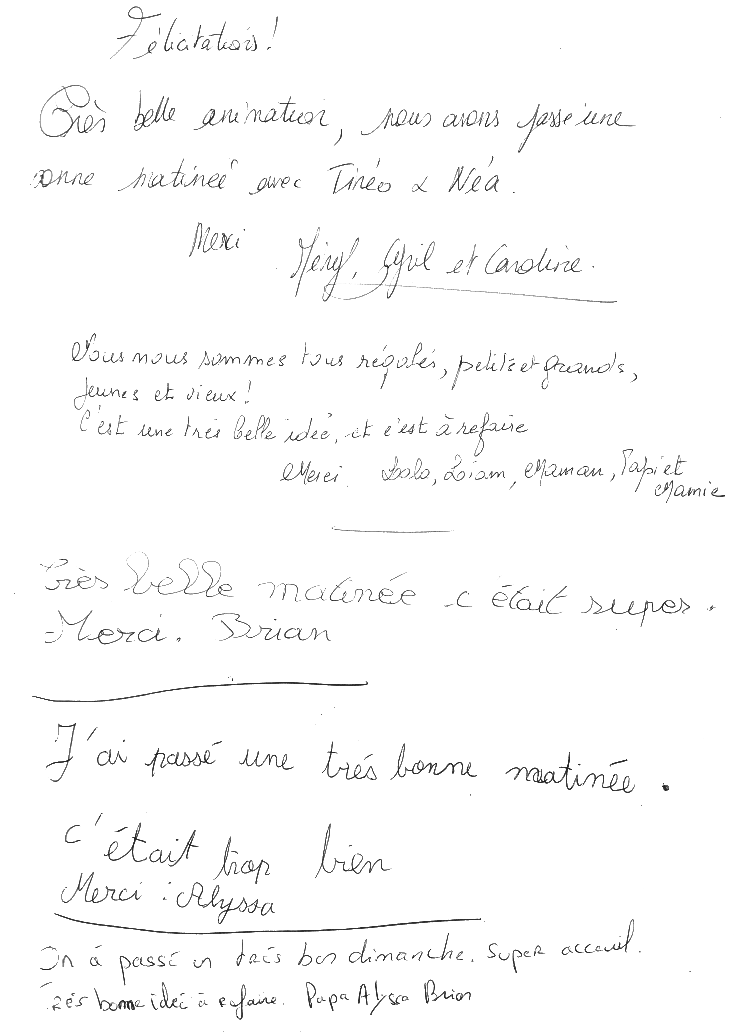 Félicitations!
Très belle animation, nous avons passé une
bonne matinée avec Tinéo & Néa.
Merci Méryl, Cyril et Caroline.
Nous nous sommes tous régalés, petits et grands,
jeunes et vieux!
C'est une très belle idée, et c'est à refaire
Merci Lolo, Liam, Maman, Papi et
Mamie
Très belle matinée c était super.
Merci. Brian
J'ai passé une trés bonne matinée.
c'était trop bien
Merci : Alyssa
On á passé un trés bon dimanche. Super acceuil.
Trés bonne ideé à refaire. Papa Alyssa Brian